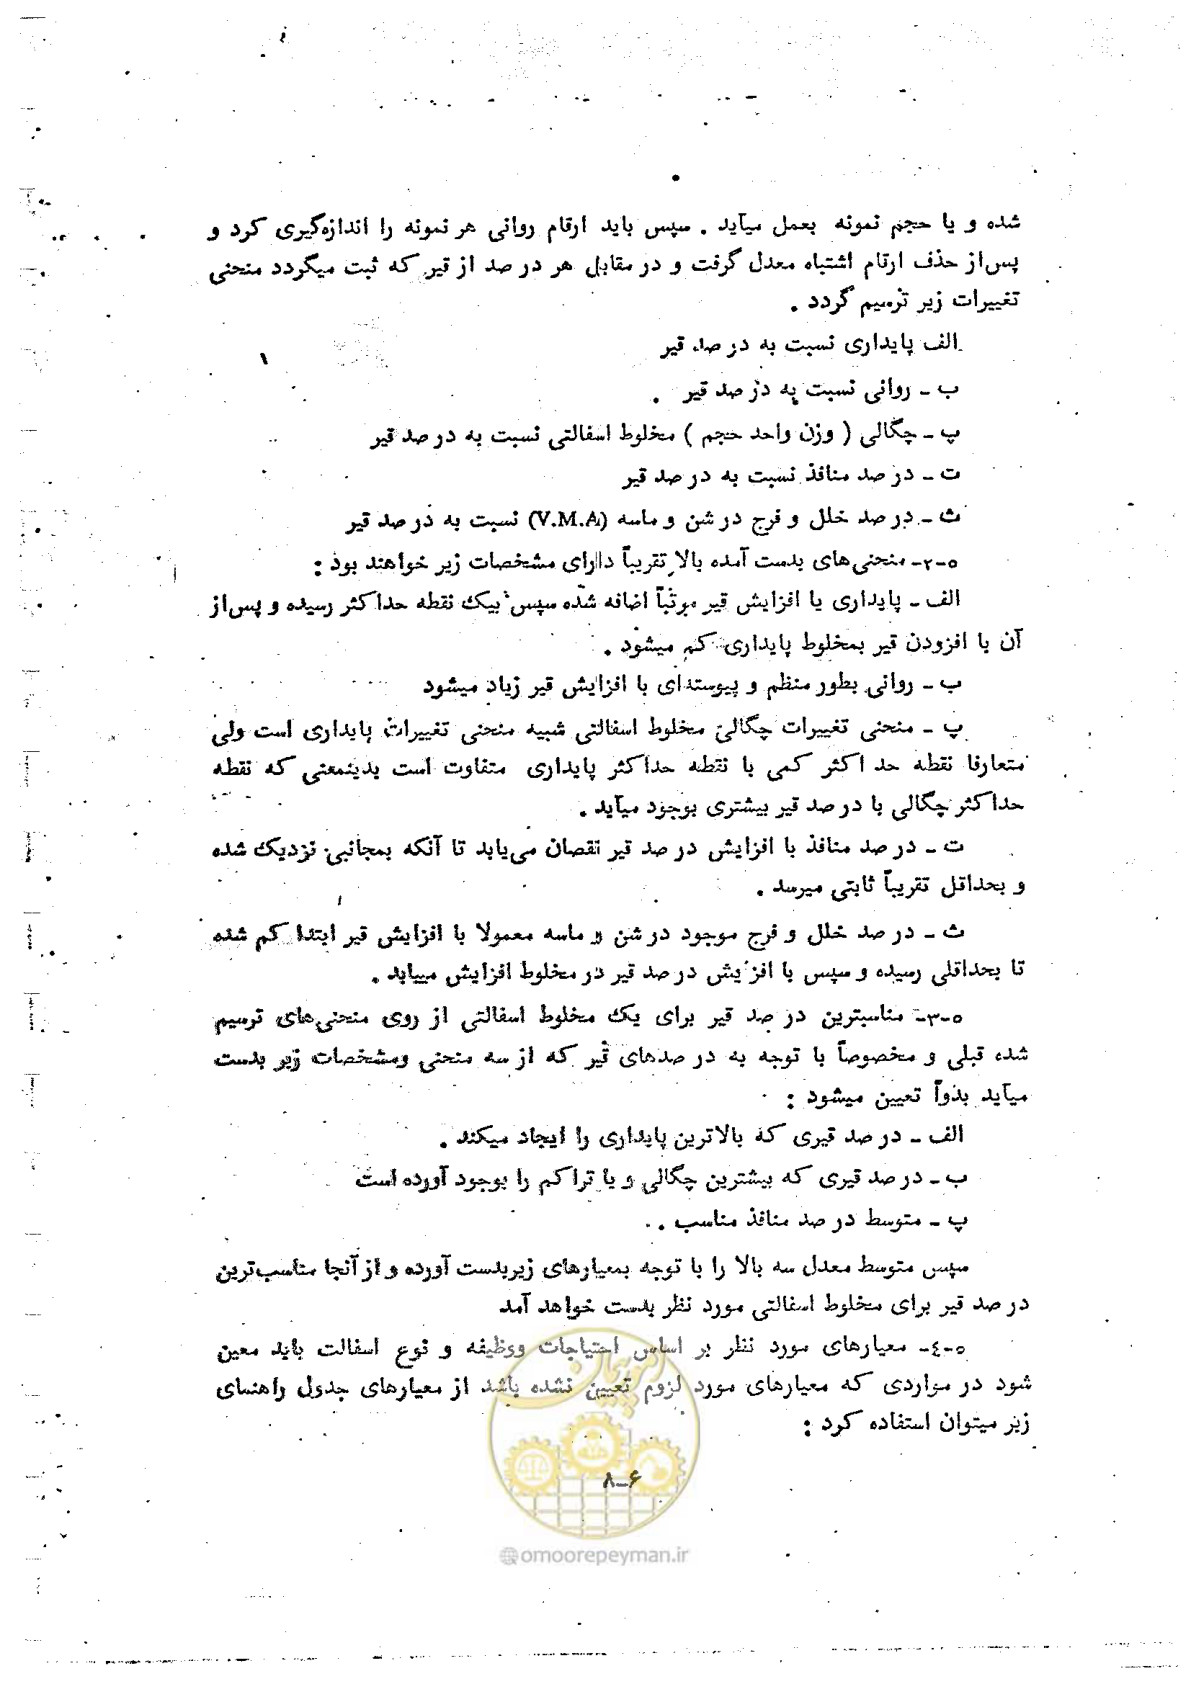 شده و یا حجم نمونه بعمل میآید . سپس باید ارقام روانی هر نمونه را اندازه‌گیری کرد و
پس‌از حذف ارقام اشتباه معدل گرفت و در مقابل هر در صد از قیر که ثبت میگردد منحنی
تغییرات زیر ترسیم گردد .
الف پایداری نسبت به در صد قیر
ب ـ روانی نسبت به در صد قیر .
پ ـ چگالی ( وزن واحد حجم ) مخلوط اسفالتی نسبت به در صد قیر
ت ـ در صد منافذ نسبت به در صد قیر
ث ـ در صد خلل و فرج در شن و ماسه (V.M.A) نسبت به در صد قیر
۵-۲- منحنی‌های بدست آمده بالا تقریباً دارای مشخصات زیر خواهند بود :
الف ـ پایداری با افزایش قیر مرتباً اضافه شده سپس بیک نقطه حداکثر رسیده و پس‌از
آن با افزودن قیر بمخلوط پایداری کم میشود .
ب ـ روانی بطور منظم و پیوسته‌ای با افزایش قیر زیاد میشود
پ ـ منحنی تغییرات چگالی مخلوط اسفالتی شبیه منحنی تغییرات پایداری است ولی
متعارفا نقطه حد اکثر کمی با نقطه حداکثر پایداری متفاوت است بدینمعنی که نقطه
حداکثر چگالی با در صد قیر بیشتری بوجود میآید .
ت ـ در صد منافذ با افزایش در صد قیر نقصان می‌یابد تا آنکه بمجانبی نزدیک شده
و بحداقل تقریباً ثابتی میرسد .
ث ـ در صد خلل و فرج موجود در شن و ماسه معمولا با افزایش قیر ابتدا کم شده
تا بحداقلی رسیده و سپس با افزایش در صد قیر در مخلوط افزایش مییابد .
۵-۳- مناسبترین در صد قیر برای یک مخلوط اسفالتی از روی منحنی‌های ترسیم
شده قبلی و مخصوصاً با توجه به در صدهای قیر که از سه منحنی ومشخصات زیر بدست
میآید بدواً تعیین میشود :
الف ـ در صد قیری که بالاترین پایداری را ایجاد میکند .
ب ـ در صد قیری که بیشترین چگالی و یا تراکم را بوجود آورده است
پ ـ متوسط در صد منافذ مناسب .
سپس متوسط معدل سه بالا را با توجه بمعیارهای زیربدست آورده و از آنجا مناسب‌ترین
در صد قیر برای مخلوط اسفالتی مورد نظر بدست خواهد آمد
۵-٤- معیارهای مورد نظر بر اساس احتیاجات ووظیفه و نوع اسفالت باید معین
شود در مواردی که معیارهای مورد لزوم تعیین نشده باشد از معیارهای جدول راهنمای
زیر میتوان استفاده کرد :
۸-۶
@omoorepeyman.ir